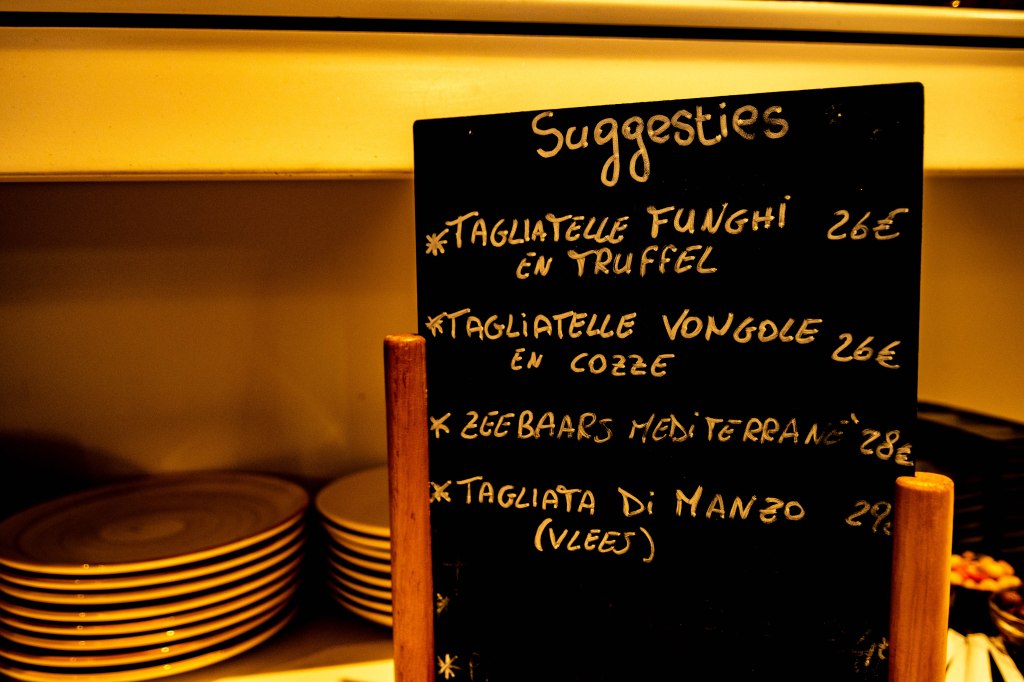 Suggesties
*TAGLIATELLE FUNGHI 26€
EN TRUFFEL
*TAGLIATELLE VONGOLE 26€
EN COZZE
* ZEEBAARS MEDITERRANE` 28€
*TAGLIATA Di MANZO 29
(VLEES)
*
*